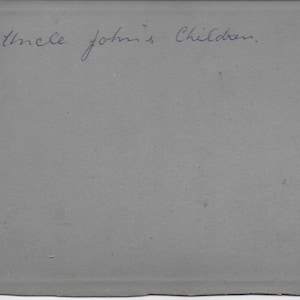 Uncle John's Children.